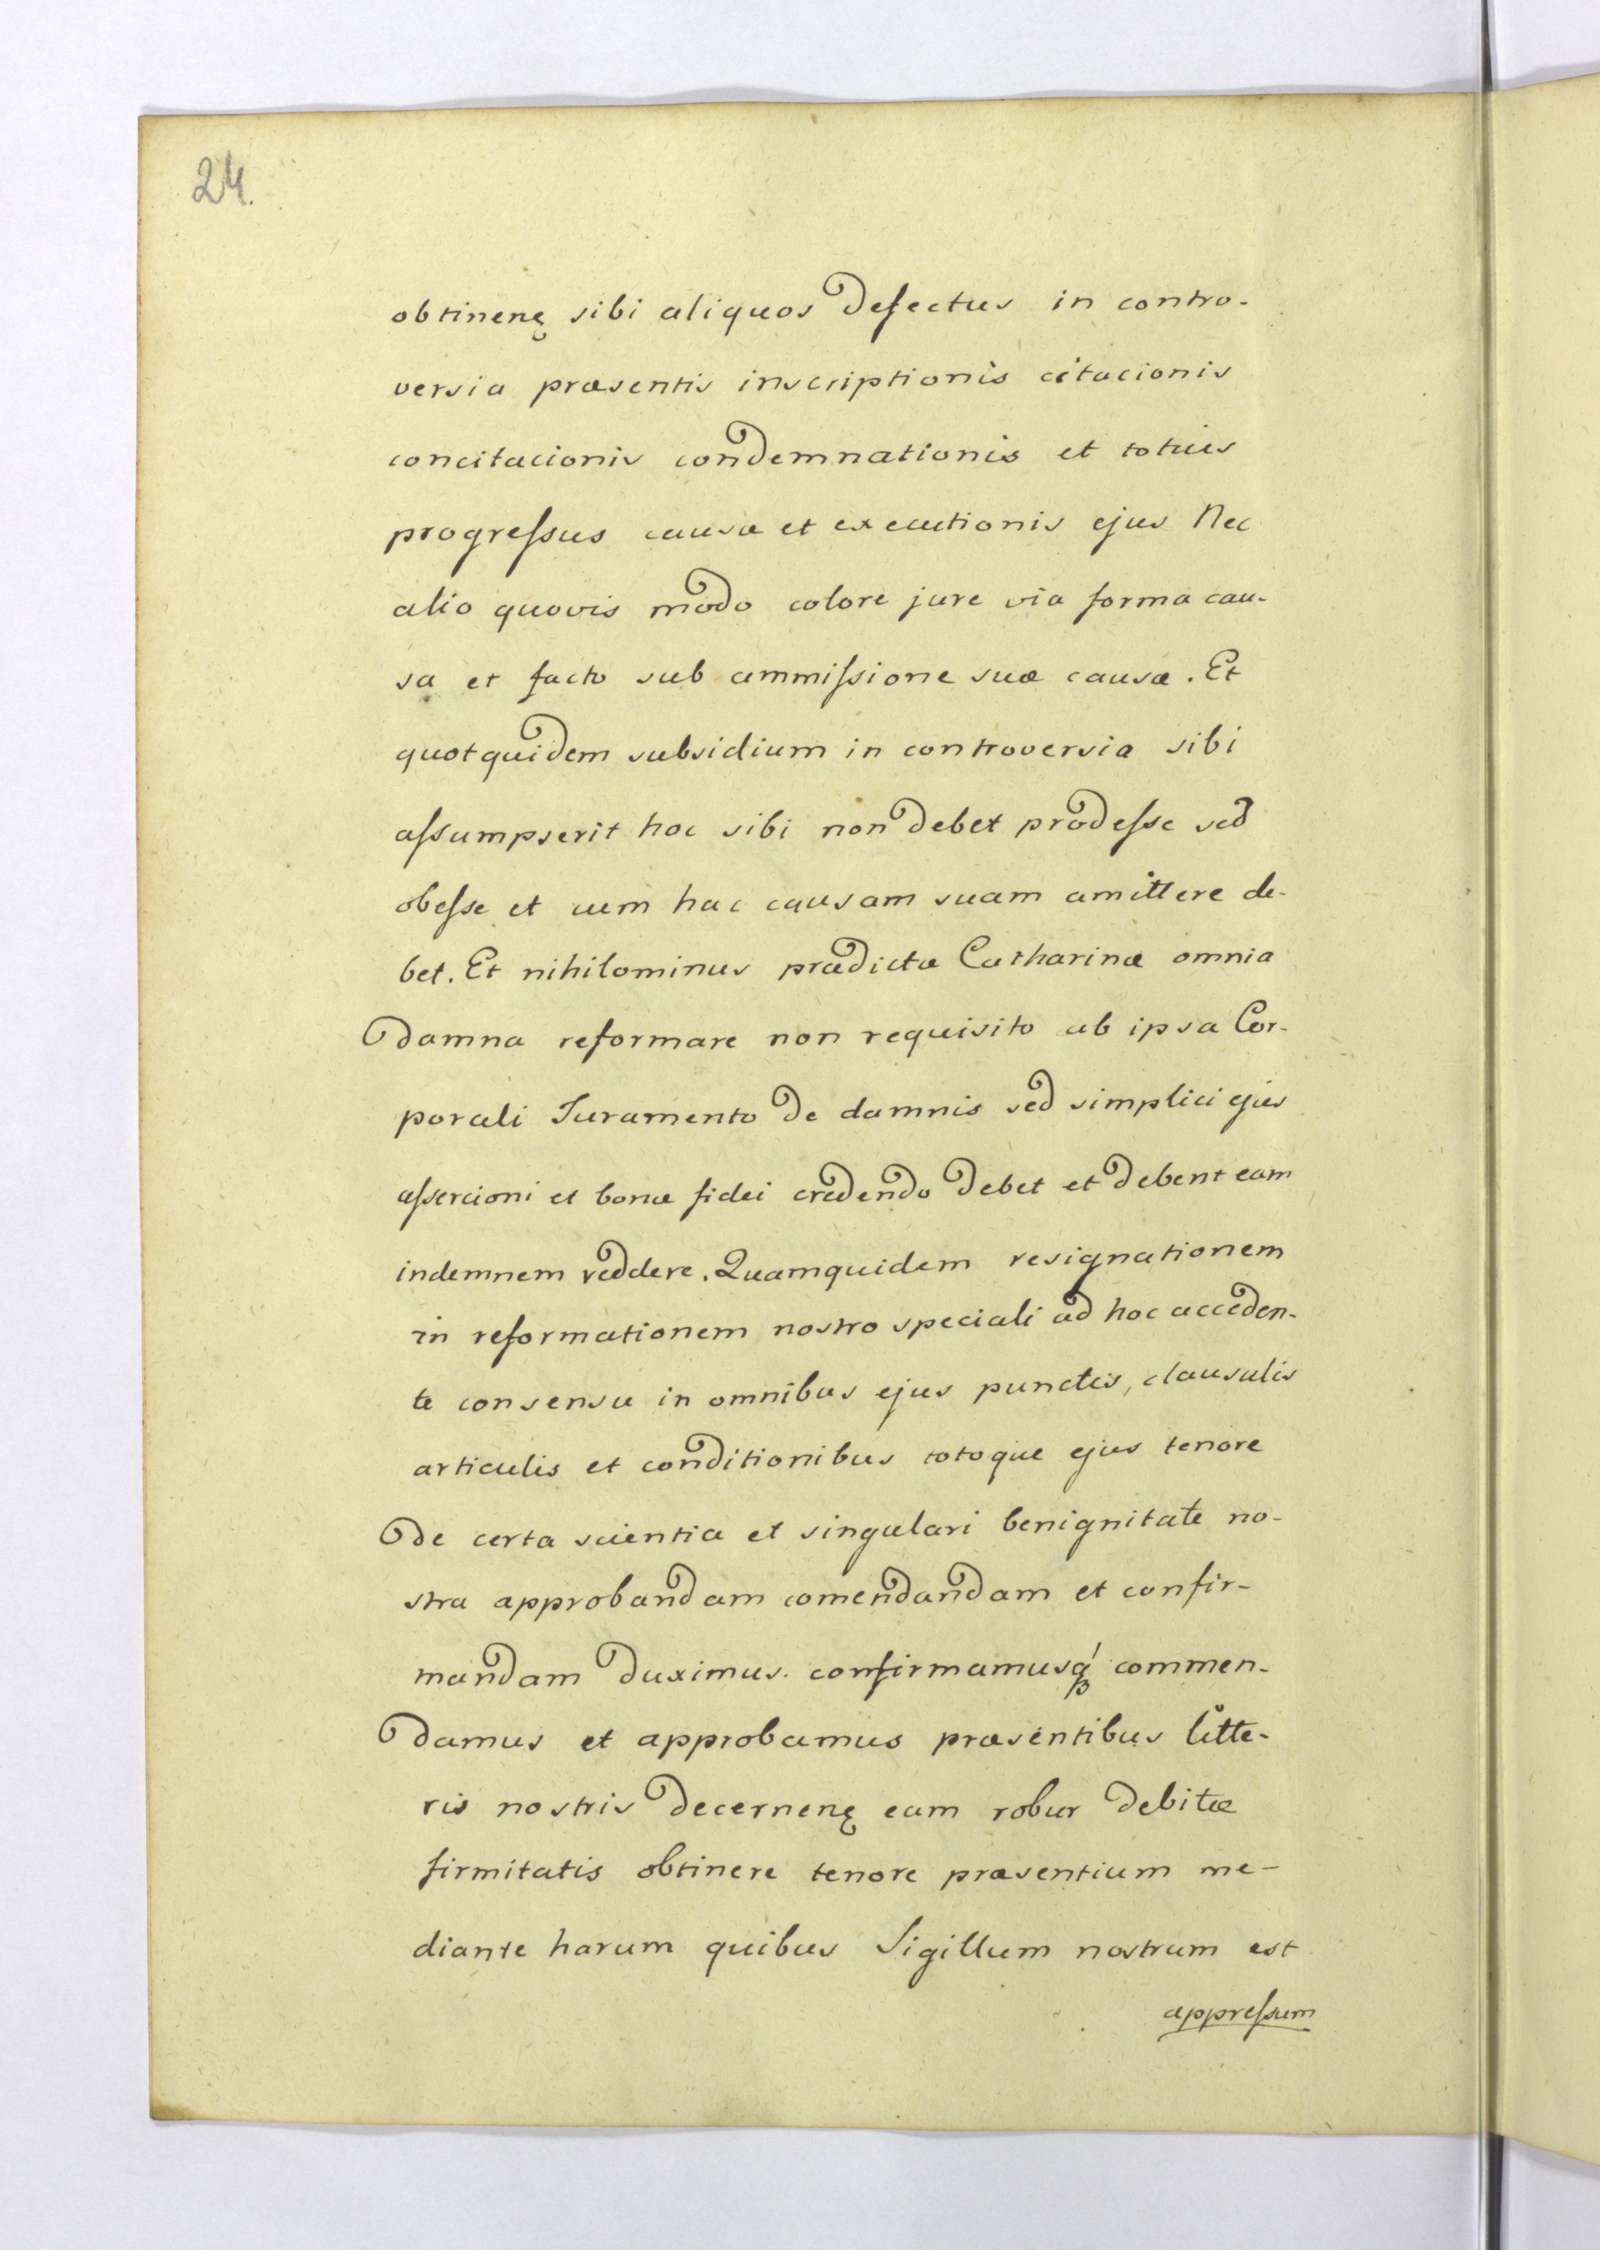 24.
obtinenȩ sibi aliquos defectus in contro-
versia præsentis inscriptionis citacionis
concitacionis condemnationis et totius
progreſsus causæ et executionis ejus Nec
alio quovis modo colore jure via forma cau-
sa et facto sub ammiſsione suæ causæ. Et
quotquidem subsidium in controversia sibi
aſsumpserit hoc sibi non debet prodeſse sed
obeſse et cum hac causam suam amittere de-
bet. Et nihilominus prædictæ Catharinæ omnia
damna reformare non requisito ab ipsa Cor-
porali Juramento de damnis sed simplici ejus
aſsercioni et bonæ fidei credendo debet et debent eam
indemnem reddere. Quamquidem resignationem
in reformationem nostro speciali ad hoc acceden-
te consensu in omnibus ejus punctis, clausulis
articulis et conditionibus totoque ejus tenore
de certa scientia et singulari benignitate no-
stra approbandam comendandam et confir-
mandam duximus. confirmamusq́ꝫ commen-
damus et approbamus præsentibus litte-
ris nostris decernenȩ eam robur debitæ
firmitatis obtinere tenore præsentium me-
diante harum quibus Sigillum nostrum est
appreſsum